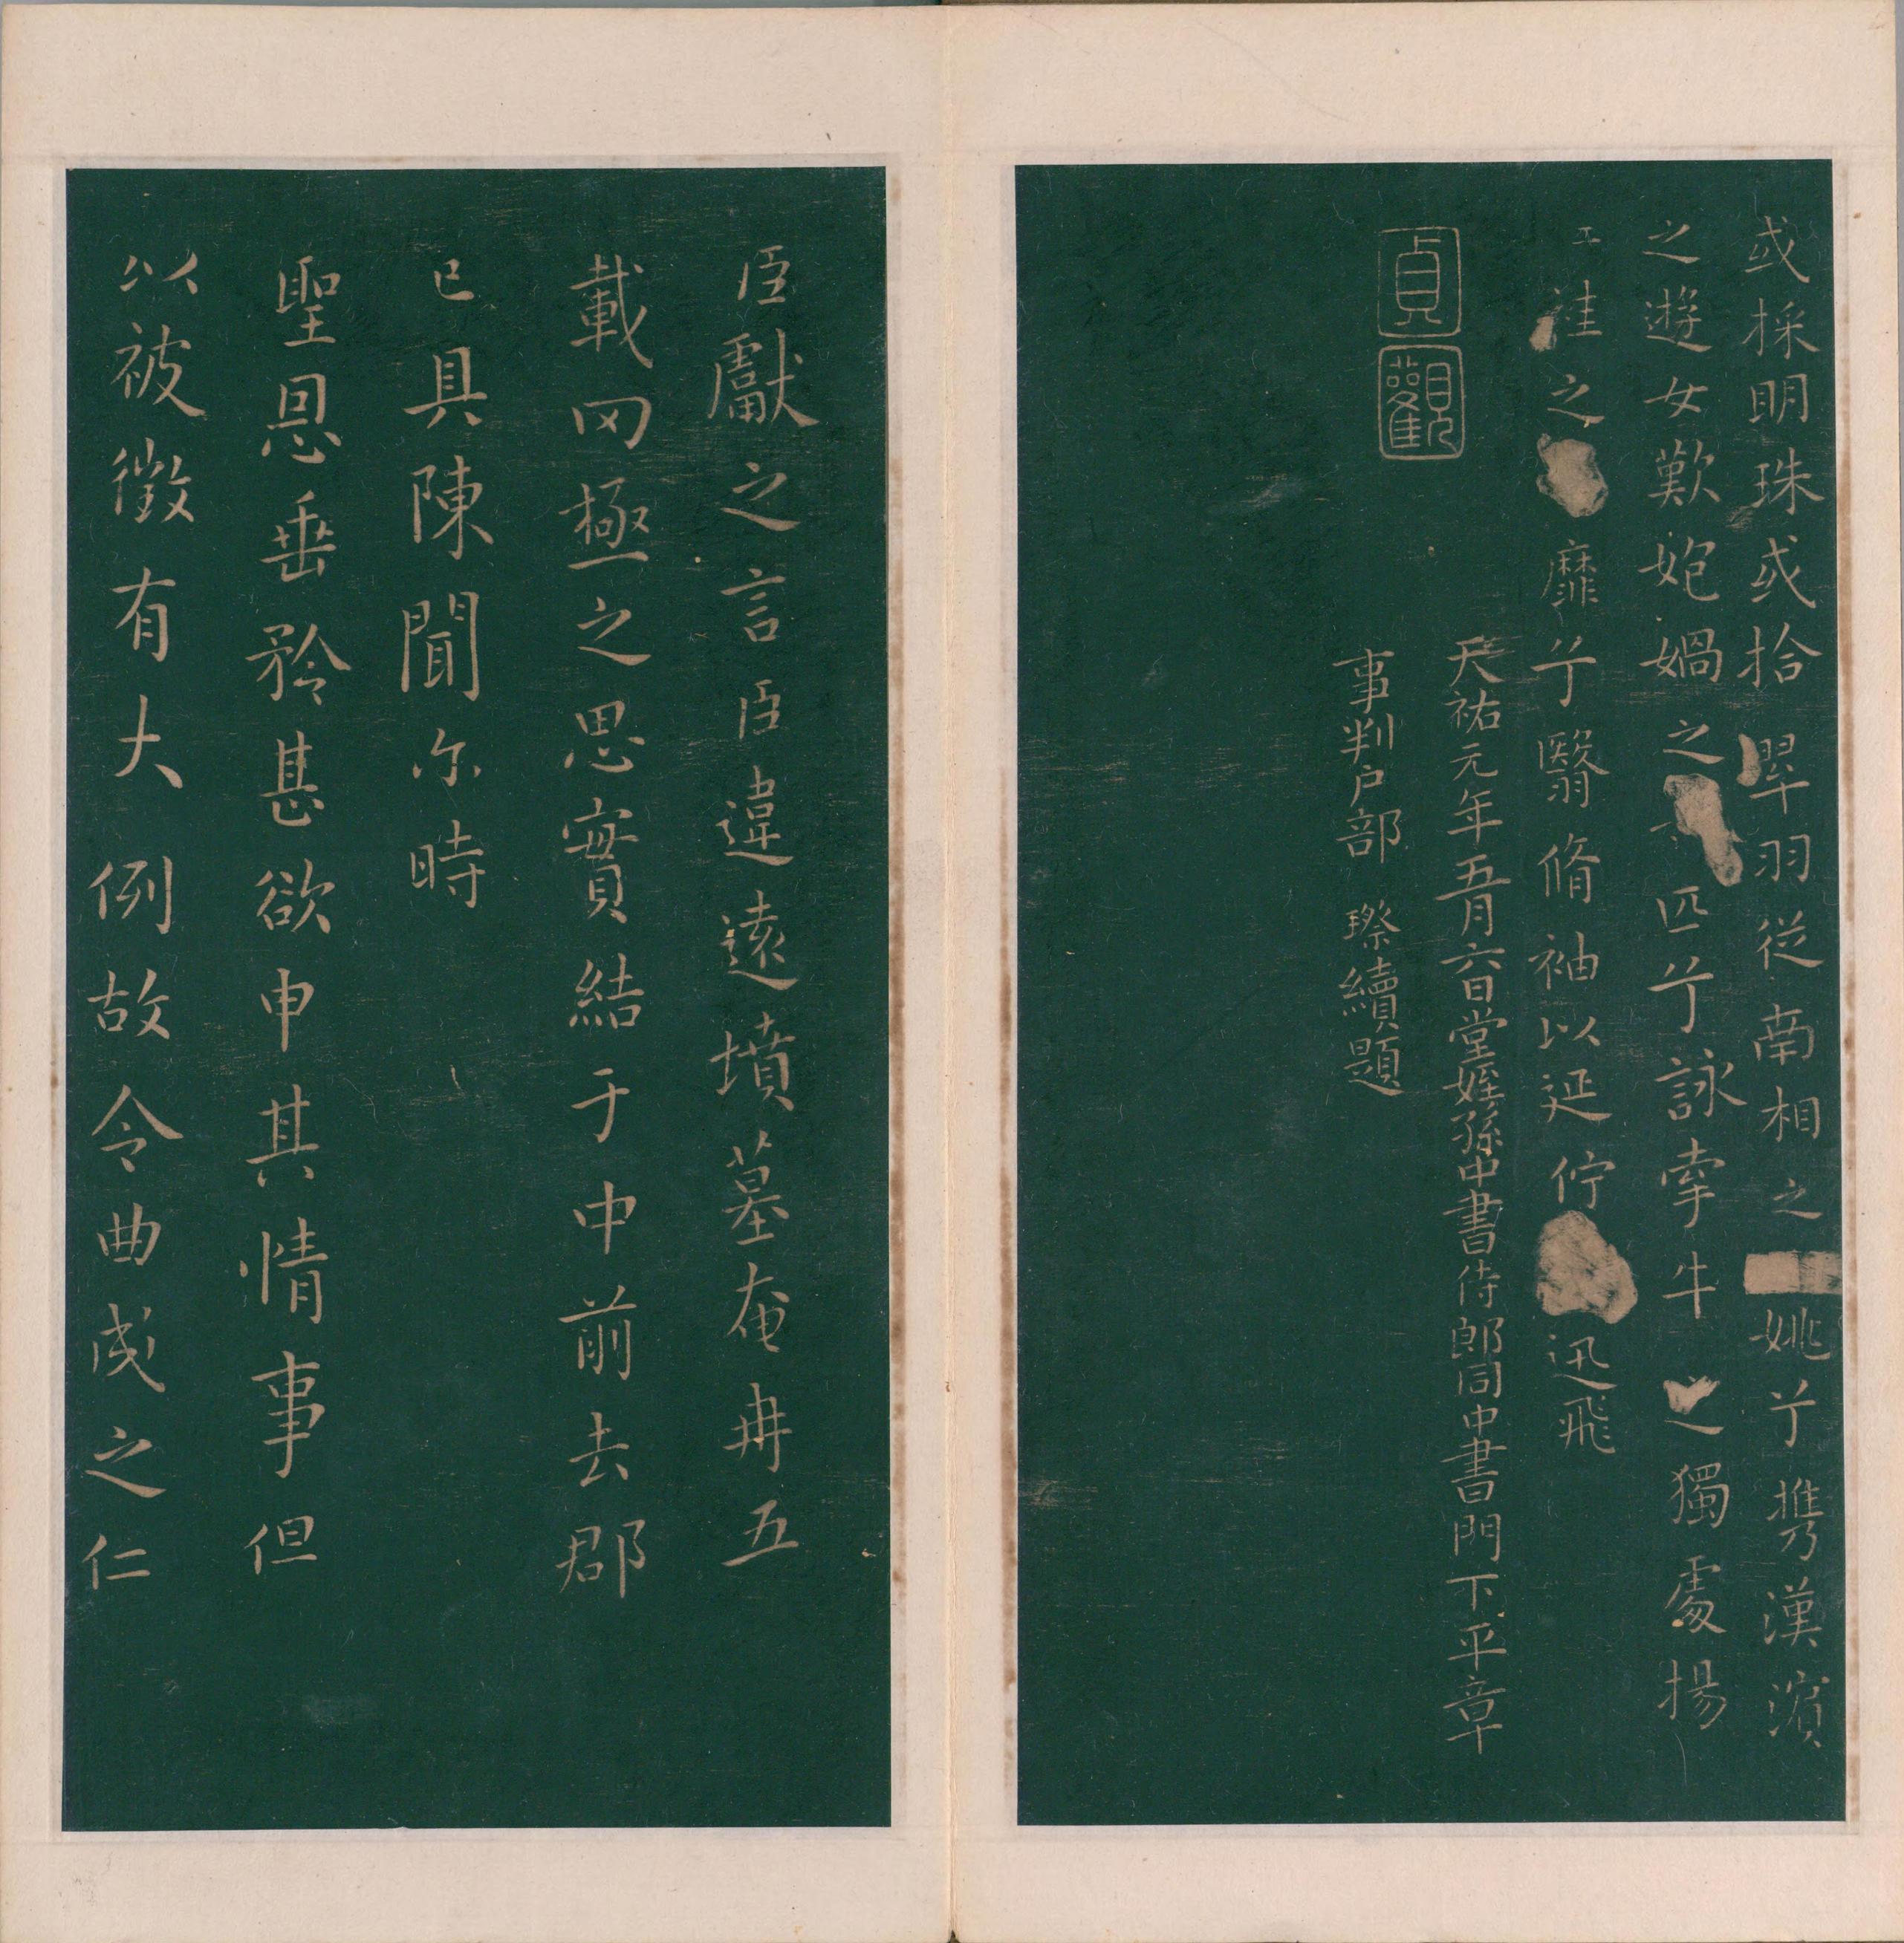 或採明珠或拾翠羽從南相之姚兮攜漢濱
之遊女歎妑媧之匹兮詠牽牛之獨處揚
袿之靡兮翳脩袖以延佇迅飛
天祐元年五月六日堂姪孫中書侍郎同中書門下平章
事判户部璨續題
貞觀
臣獻之言臣違遠墳墓奄冉五
載罔極之思實結于中前去郡
已具陳聞尔時
聖恩垂矜甚欲申其情事但
以被徵有大例故令曲成之仁